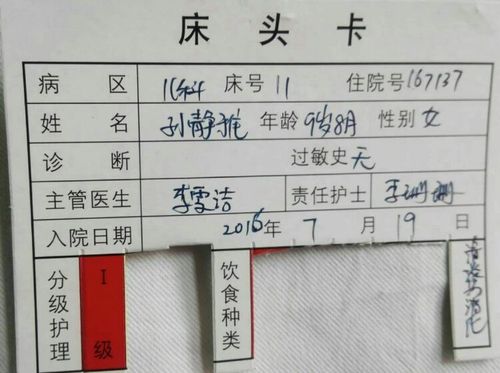 床头卡
病区 儿科 床号 11 住院号 167137
姓名 孙静雅 年龄 9岁8月 性别 女
诊断 过敏史 无
主管医生 李雪洁 责任护士 李珊珊
入院日期 2016年 7月 19日
分级护理 I级 饮食种类 清淡易消化